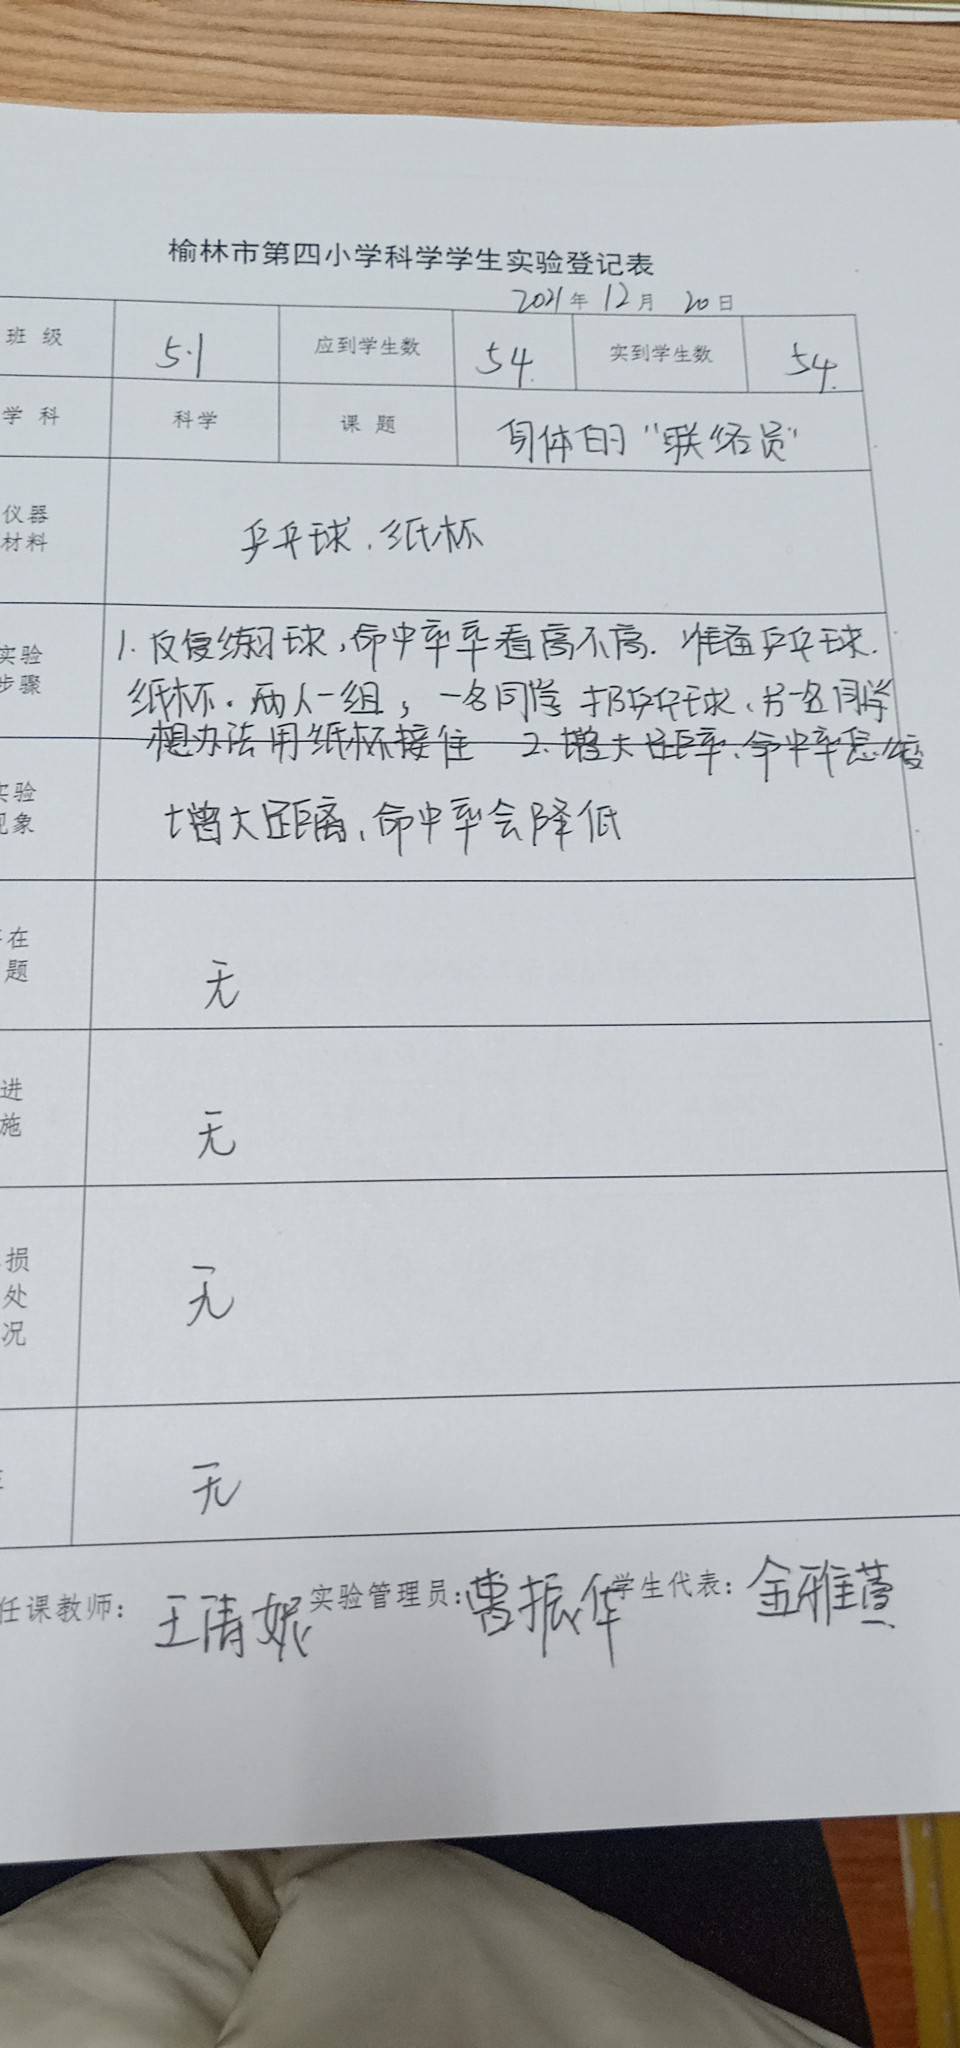 榆林市第四小学科学学生实验登记表
2021年12月20日
班级 5.1 应到学生数 54. 实到学生数 54.
学科 科学 课题 身体的“联络员”
仪器
材料
乒乓球、纸杯
实验
步骤
1. 反复练习球,命中率率看高不高. 准备乒乓球.
纸杯.两人一组,一名同学扔乒乓球、另一名同学
想办法用纸杯接住 2.增大距率、命中率怎么变
实验
现象
增大距离、命中率会降低
在
题
无
进
施
无
损
处
况
无
无
任课教师: 王清妮 实验管理员: 曹振华 学生代表: 金雅萱